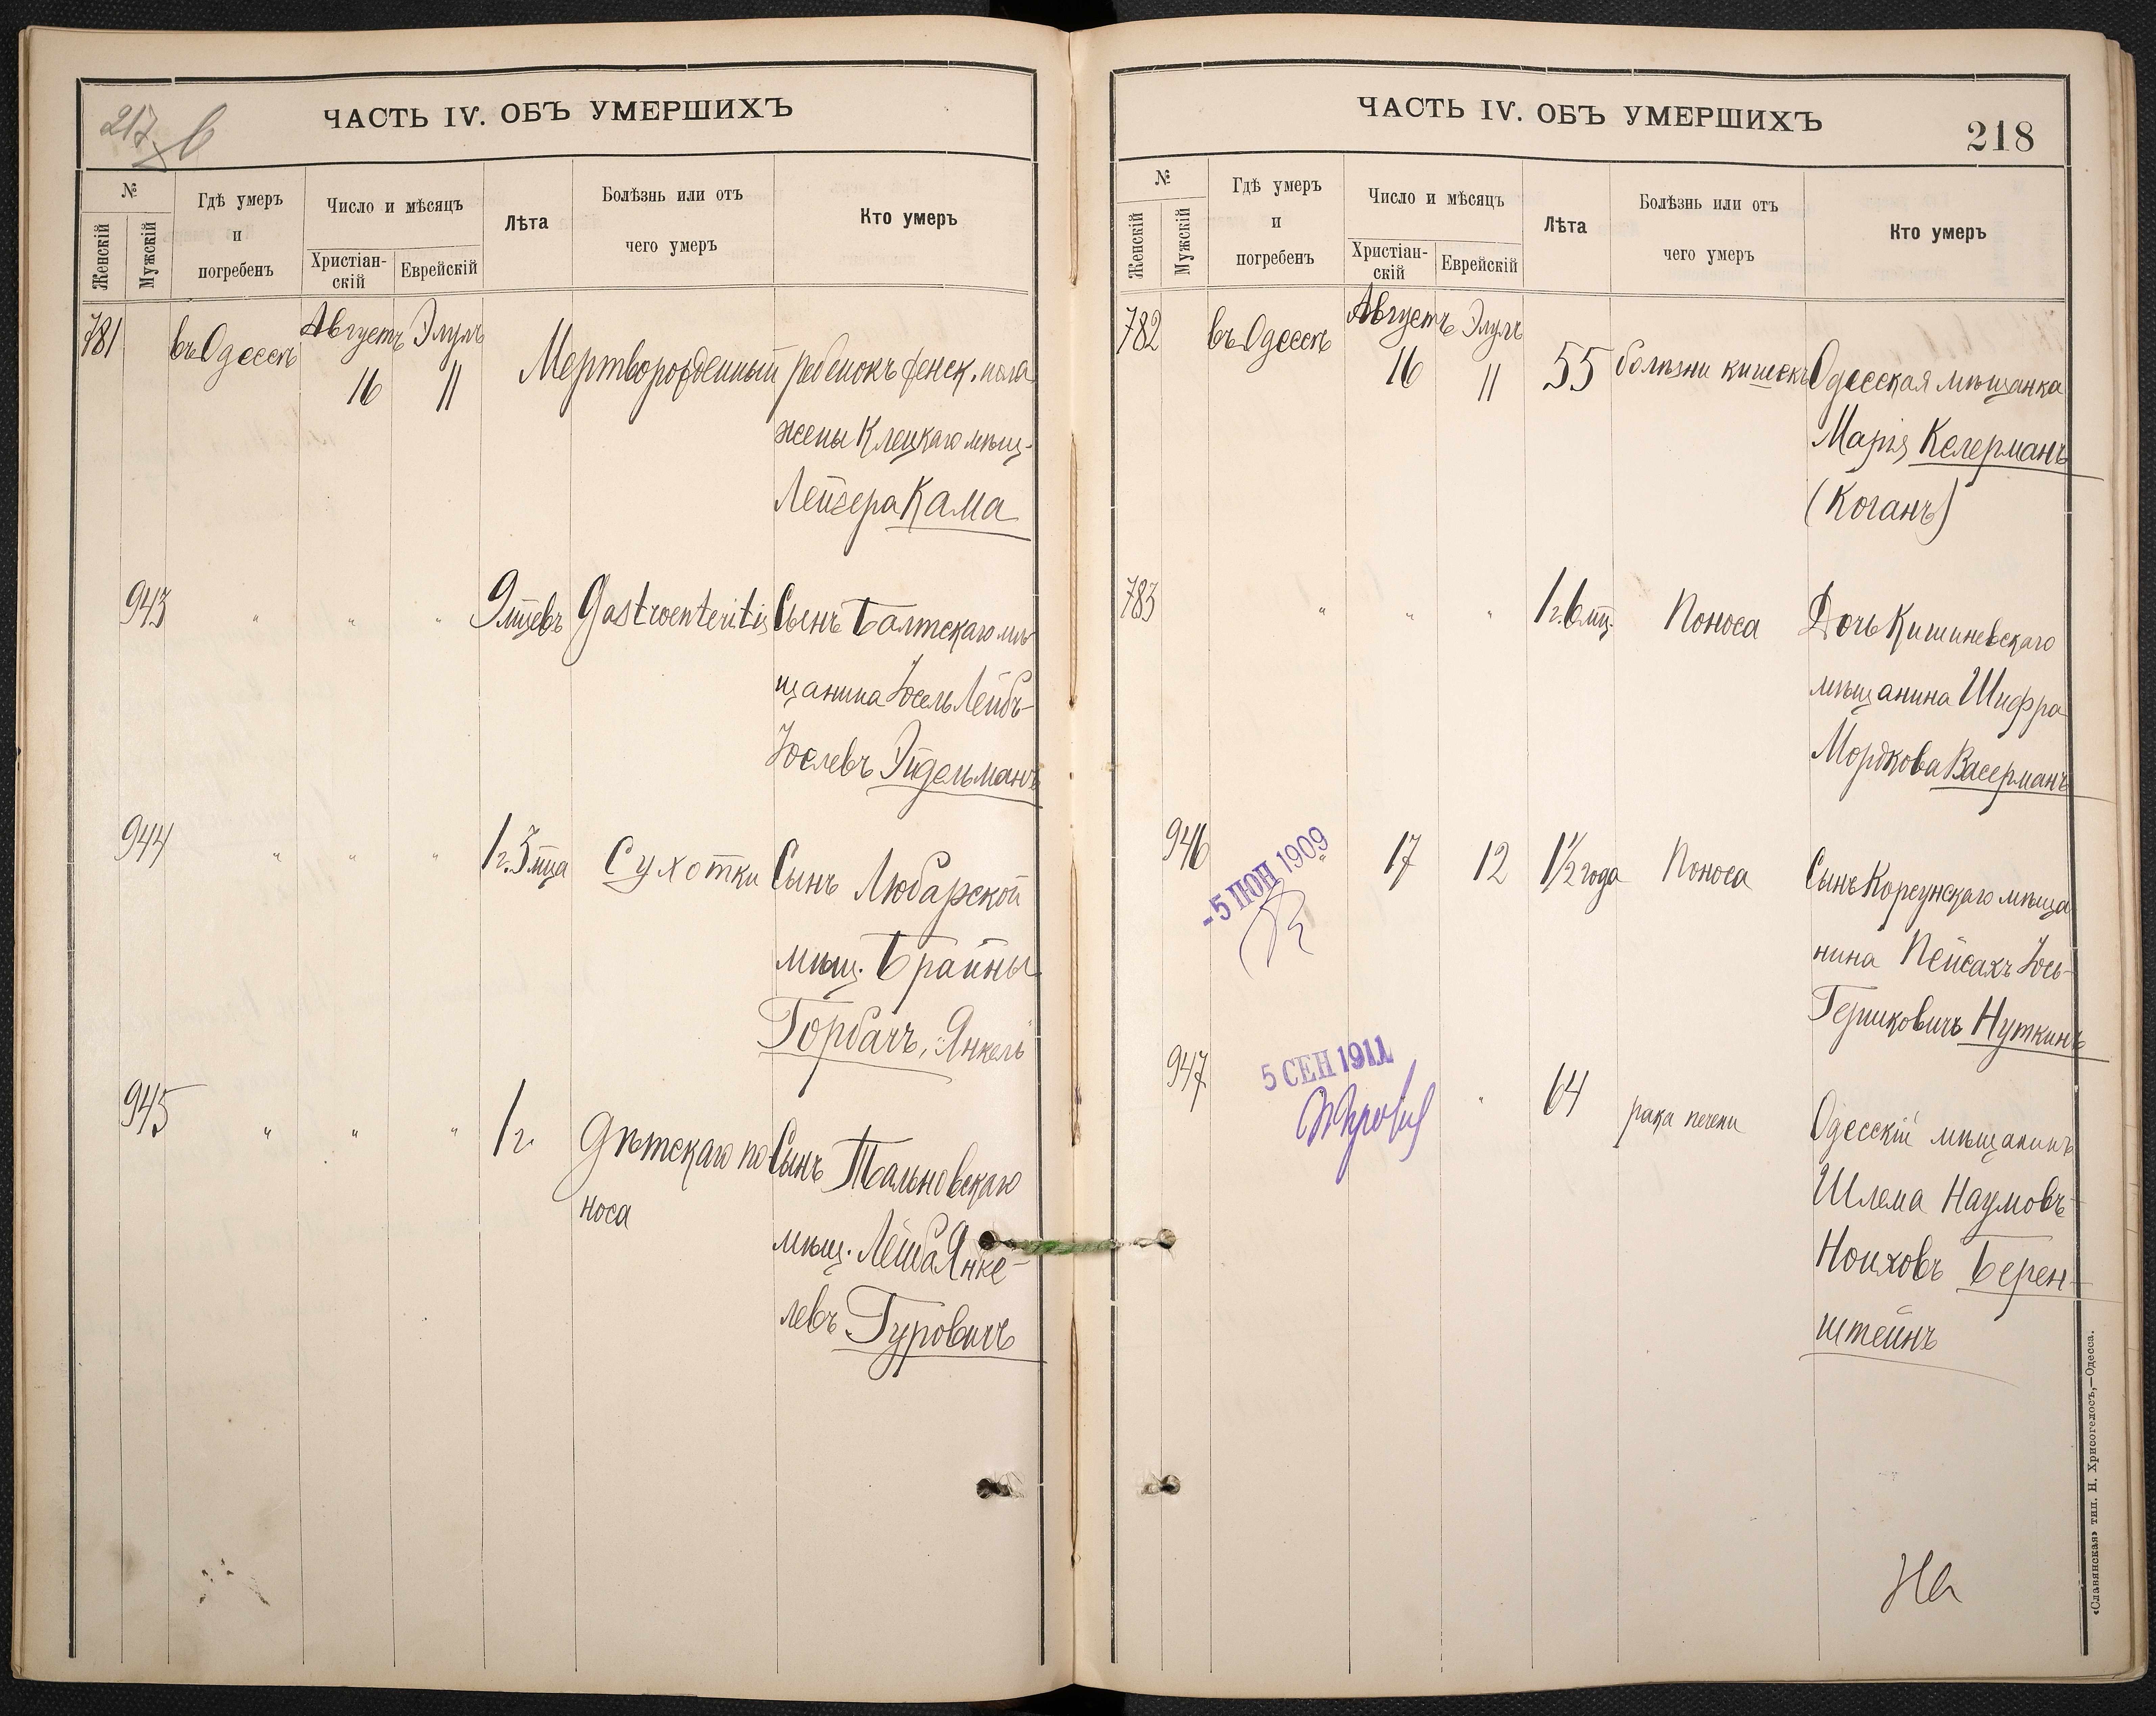 217 б
ЧАСТЬ IV. ОБЪ УМЕРШИХЪ
№
Женскій
Мужскій
Гдѣ умеръ
и
погребенъ
Число и мѣсяцъ
Христіан-
скій
Еврейскій
Лѣта
Болѣзнь или отъ
чего умеръ
Кто умеръ
781 въ Одессѣ Августъ 16 Элулъ 11 Мертворожденный ребенокъ женск. пола
жены Клецкаго мѣщ.
Лейзера Кама
943 " " " 9 мцевъ Gastroenteritis Сынъ Балтскаго мѣ-
щанина Іосель Лейбъ-
Іослевъ Эйдельманъ
944 " " " 1 г. 3 мца Сухотки Сынъ Любарской
мѣщ. Брайны
Горбачъ, Янкель
945 " " " 1 г. Дѣтскаго по- Сынъ Тальновскаго
носа
мѣщ. Лейба Янке-
левъ Гуровичъ
ЧАСТЬ IV. ОБЪ УМЕРШИХЪ
218
№
Женскій
Мужскій
Гдѣ умеръ
и
погребенъ
Число и мѣсяцъ
Христіан-
скій
Еврейскій
Лѣта
Болѣзнь или отъ
чего умеръ
Кто умеръ
782 въ Одессѣ Августъ 16 Элулъ 11 55 болѣзни кишекъ Одесская мѣщанка
Марія Келерманъ
(Коганъ)
783 " " " 1 г. 6 мц. Поноса Дочь Кишиневскаго
мѣщанина Шифра
Мордкова Васерманъ
946 -5 ІЮН 1909 17 12 1 1/2 года Поноса Сынъ Корсунскаго мѣща
нина Пейсахъ Іось-
Гершковичъ Нуткинъ
947 5 СЕН 1911 " 64 рака печени Одесскій мѣщанинъ
Шлема Наумовъ-
Ноиховъ Берен-
штейнъ
На
«Славянская» тип. Н. Хрисогелосъ,—Одесса.